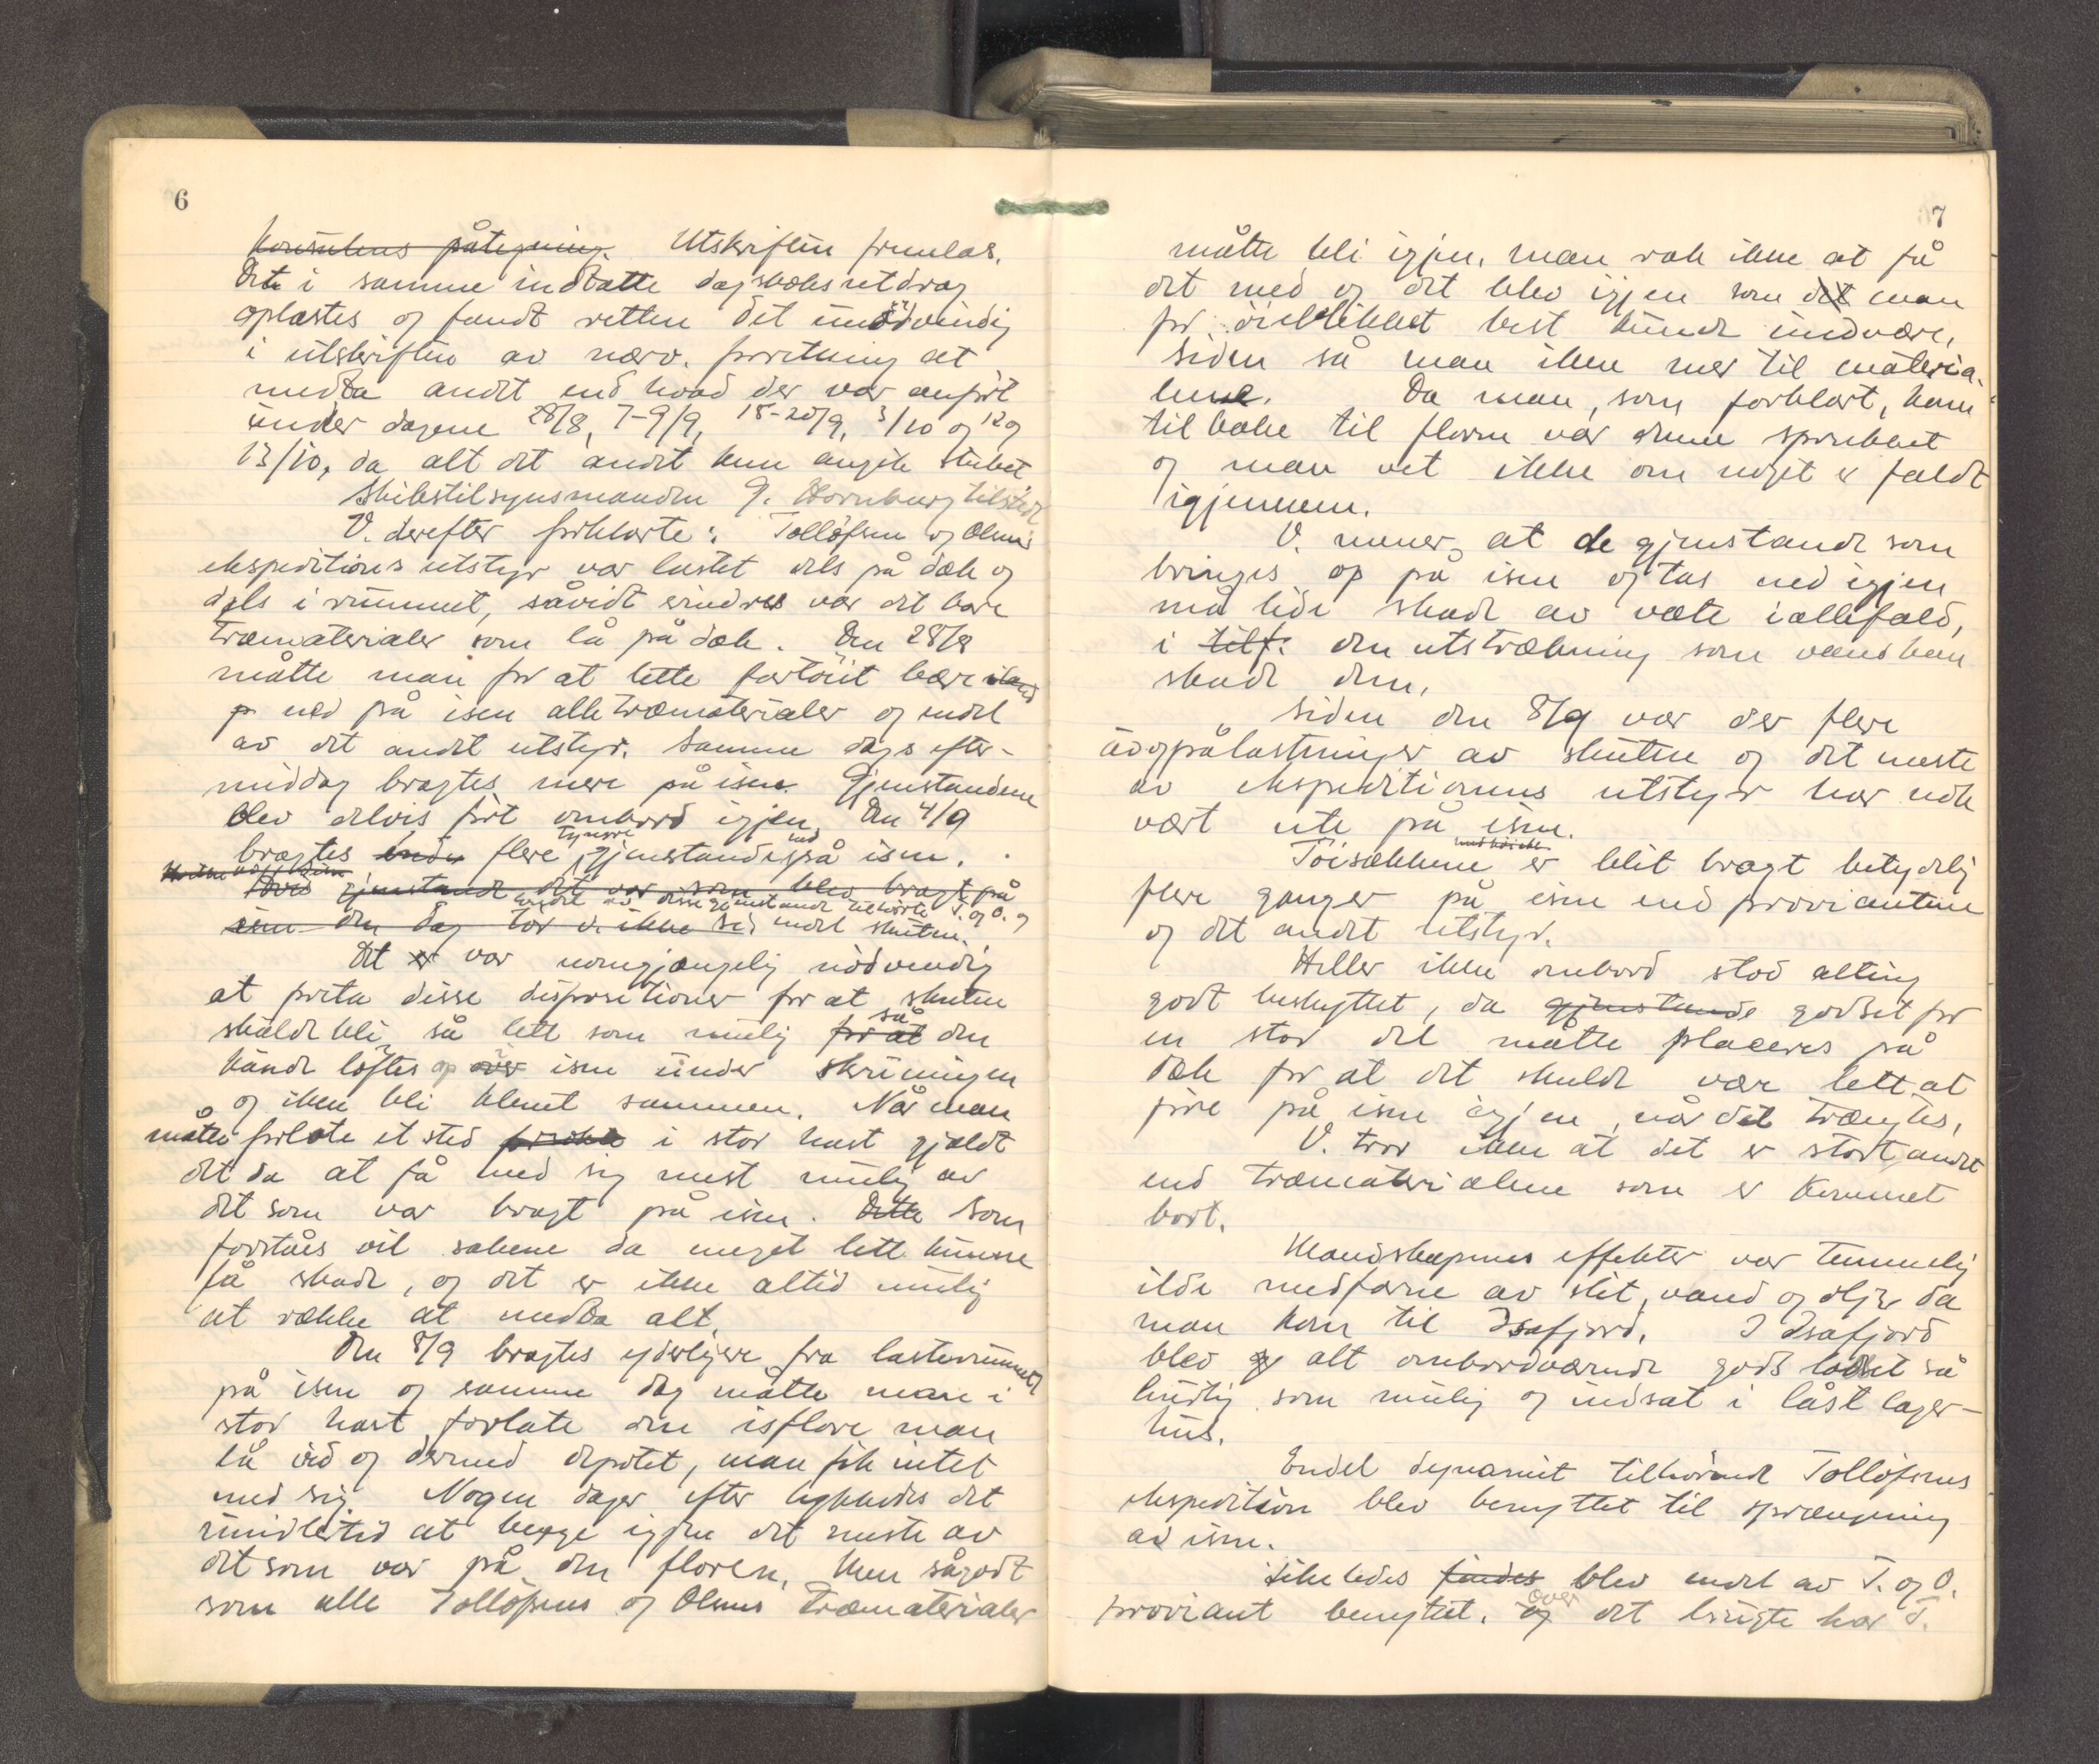 6
Konsulens påtegning. Utskriften fremlas.
Det i samme indtatte dagboksutdrag
oplæstes og fandt retten det unødvendig
i utskriften av nærv. forretning at
medta andet end hvad der var anført
under dagene 28/8, 7-9/9, 18-20/9, 3/10 og 12 og
13/10, da alt det andet kun angik skibet
Skibstilsynsmanden G. Hornburg tilstede
V. derefter forklarte: Tollefsen og Olsens
ekspeditions utstyr var lastet dels på dæk og
dels i rummet, såvidt erindres var det bare
træmaterialer som lå på dæk. Den 28/8
måtte man for at lette fartöiet bære
ned på isen alle træmaterialer og endel
av det andet utstyr. Samme dags efter-
middag bragtes mere på isen. Gjenstandene
blev delvis ført ombord igjen. Den 4/9
bragtes endu flere tyngre gjenstande ned på isen.
gjenstande det var som blev bragt på
av disse gjenstande tilhörte T. og O. og
isen den dag tör v. ikke si, endel skuten.
Det er var uomgjængelig nödvendig
at foreta disse dispositioner for at skuten
skulde bli så lett som mulig for at så den
kunde löftes op over isen under skruingen
og ikke bli klemt sammen. Når man
måtte forlate et sted i stor hast gjaldt
det da at få med sig mest mulig av
det som var bragt på isen. Dette Som
forståes vil sakene da meget lett kunne
få skade, og det er ikke altid mulig
at række at medta alt.
Den 8/9 bragtes yderligere fra lasterummet
på isen og samme dag måtte man i
stor hast forlate den isflore man
lå ved og dermed depotet, man fik intet
med sig. Nogen dager efter lykkedes det
imidlertid at berge igjen det meste av
det som var på den floren. Men sågodt
som alle Tollefsens og Olsens træmaterialer
7
måtte bli igjen, man rak ikke at få
det med og det blev igjen som det man
for öieblikket best kunde undvære,
siden så man ikke mer til materia-
lene. Da man, som forklart, kom
tilbake til floren var denne sprukket
og man vet ikke om noget er faldt
igjennem.
V. mener, at de gjenstande som
bringes op på isen og tas ned igjen
må lide skade av væte iallefald,
i tilf: den utstrækning som vand kan
skade dem.
Siden den 8/9 var der flere
av og pålastninger av skuten og det meste
av ekspeditionens utstyr har nok
vært ute på isen.
Töisækkene er blit bragt betydelig
flere ganger på isen end provianten
og det andet utstyr.
Heller ikke ombord stod alting
godt beskyttet, da gjenstande godset for
en stor del måtte placeres på
dæk for at det skulde være lett at
före på isen igjen, når det trængtes.
V. tror ikke at det er stort andet
end træmaterialene som er kommet
bort.
Mandskapenes effekter var temmelig
ilde medfarne av slit, vand og olje da
man kom til Isafjord. I Isafjord
blev alt ombordværende gods losset så
hurtig som mulig og indsat i låst lager-
hus.
Endel dynamit tilhörende Tollefsens
ekspedition blev benyttet til sprængning
av isen.
Likeledes findes blev endel av T. og O.
proviant benyttet. og over det brugte har T.